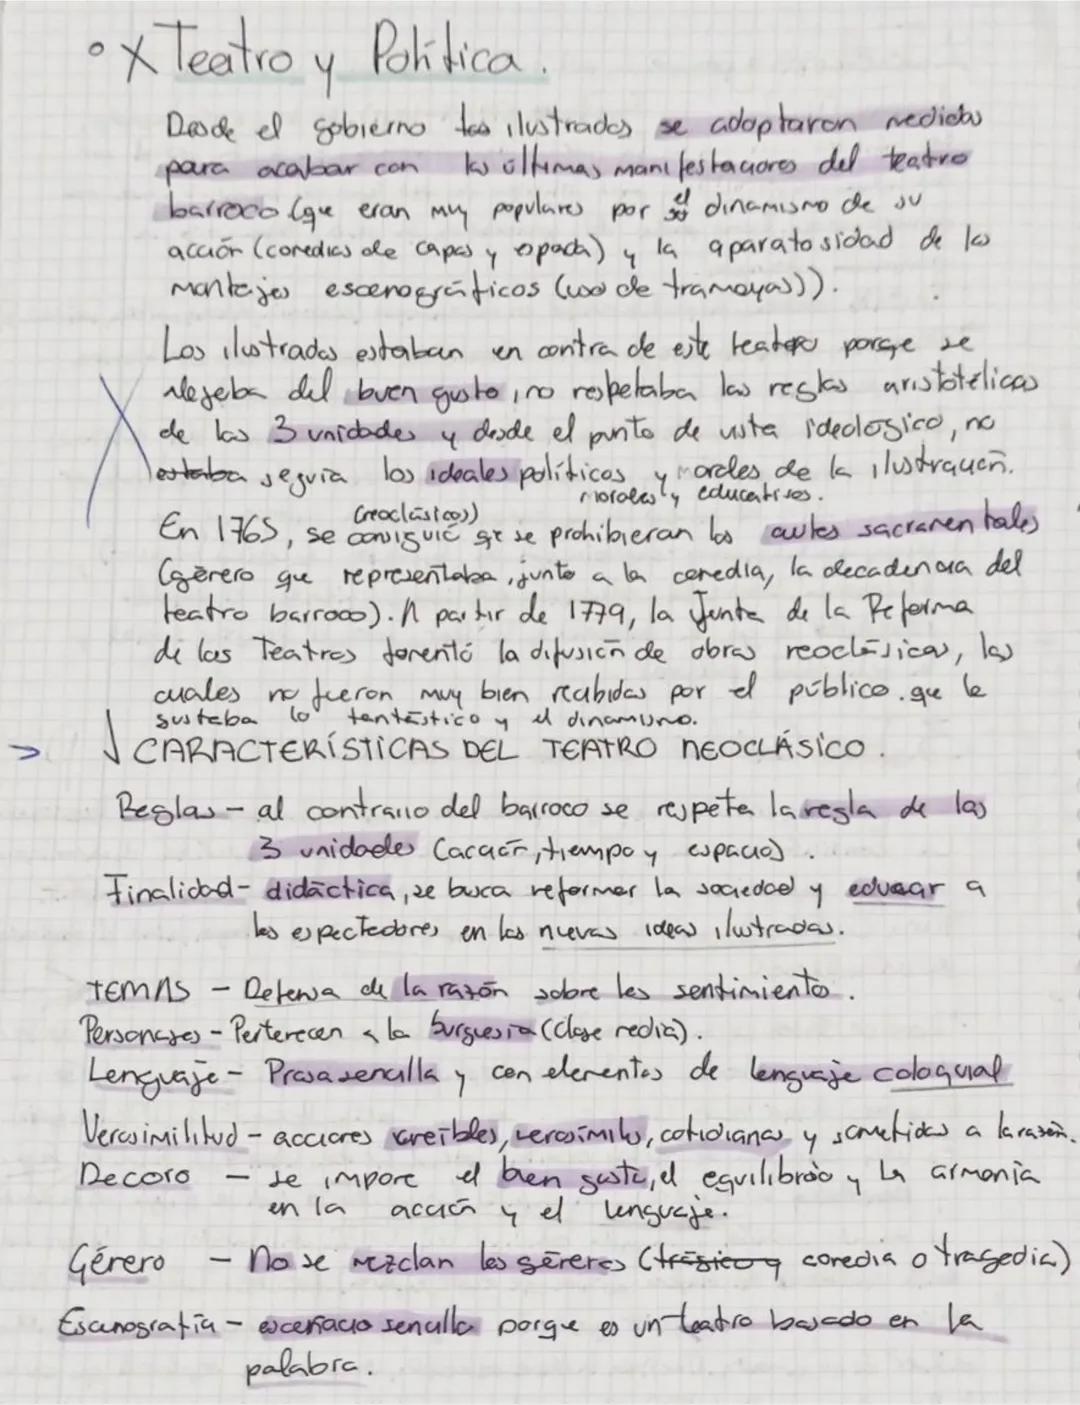 ° X Teatro y Política.
Desde el gobierno los ilustrados se adoptaron medidas
para acabar con las últimas manifestaciones del teatro
barroco (que eran muy populares por el dinamismo de su
acción (comedias de capa y espada) y la aparatosidad de los
montajes escenográficos (uso de tramoyas)).
Los ilustrados estaban en contra de este teatro porqe se
alejaba del buen gusto, no respetaba las reglas aristotélicas
de las 3 unidades y desde el punto de vista ideológico, no
estaba seguía los ideales políticos y morales de la ilustración.
morales y educativos.
(neoclásicos)
En 1765, se consiguió qe se prohibieran los autos sacramentales
(género que representaba, junto a la comedia, la decadencia del
teatro barroco). A partir de 1779, la Junta de la Reforma
de los Teatros fomentó la difusión de obras neoclásicas, las
cuales no fueron muy bien recibidas por el público. que le
gustaba lo fantástico y el dinamismo.
> ↓ CARACTERÍSTICAS DEL TEATRO NEOCLÁSICO.
Reglas - al contrario del barroco se respeta la regla de las
3 unidades (acción, tiempo y espacio).
Finalidad - didáctica, se busca reformar la sociedad y educar a
los espectadores en las nuevas ideas ilustradas.
TEMAS - Defensa de la razón sobre los sentimiento.
Personajes - Pertenecen a la burguesía (clase media).
Lenguaje - Prosa sencilla y con elementos de lenguaje coloquial
Verosimilitud - acciones creíbles, verosímiles, cotidianas y sometidas a la razón.
Decoro - se impone el buen gusto, el equilibrio y la armonía
en la acción y el lenguaje.
Género - No se mezclan los géneros (trágico y comedia o tragedia)
Escenografía - escenario sencillo porque es un teatro basado en la
palabra.